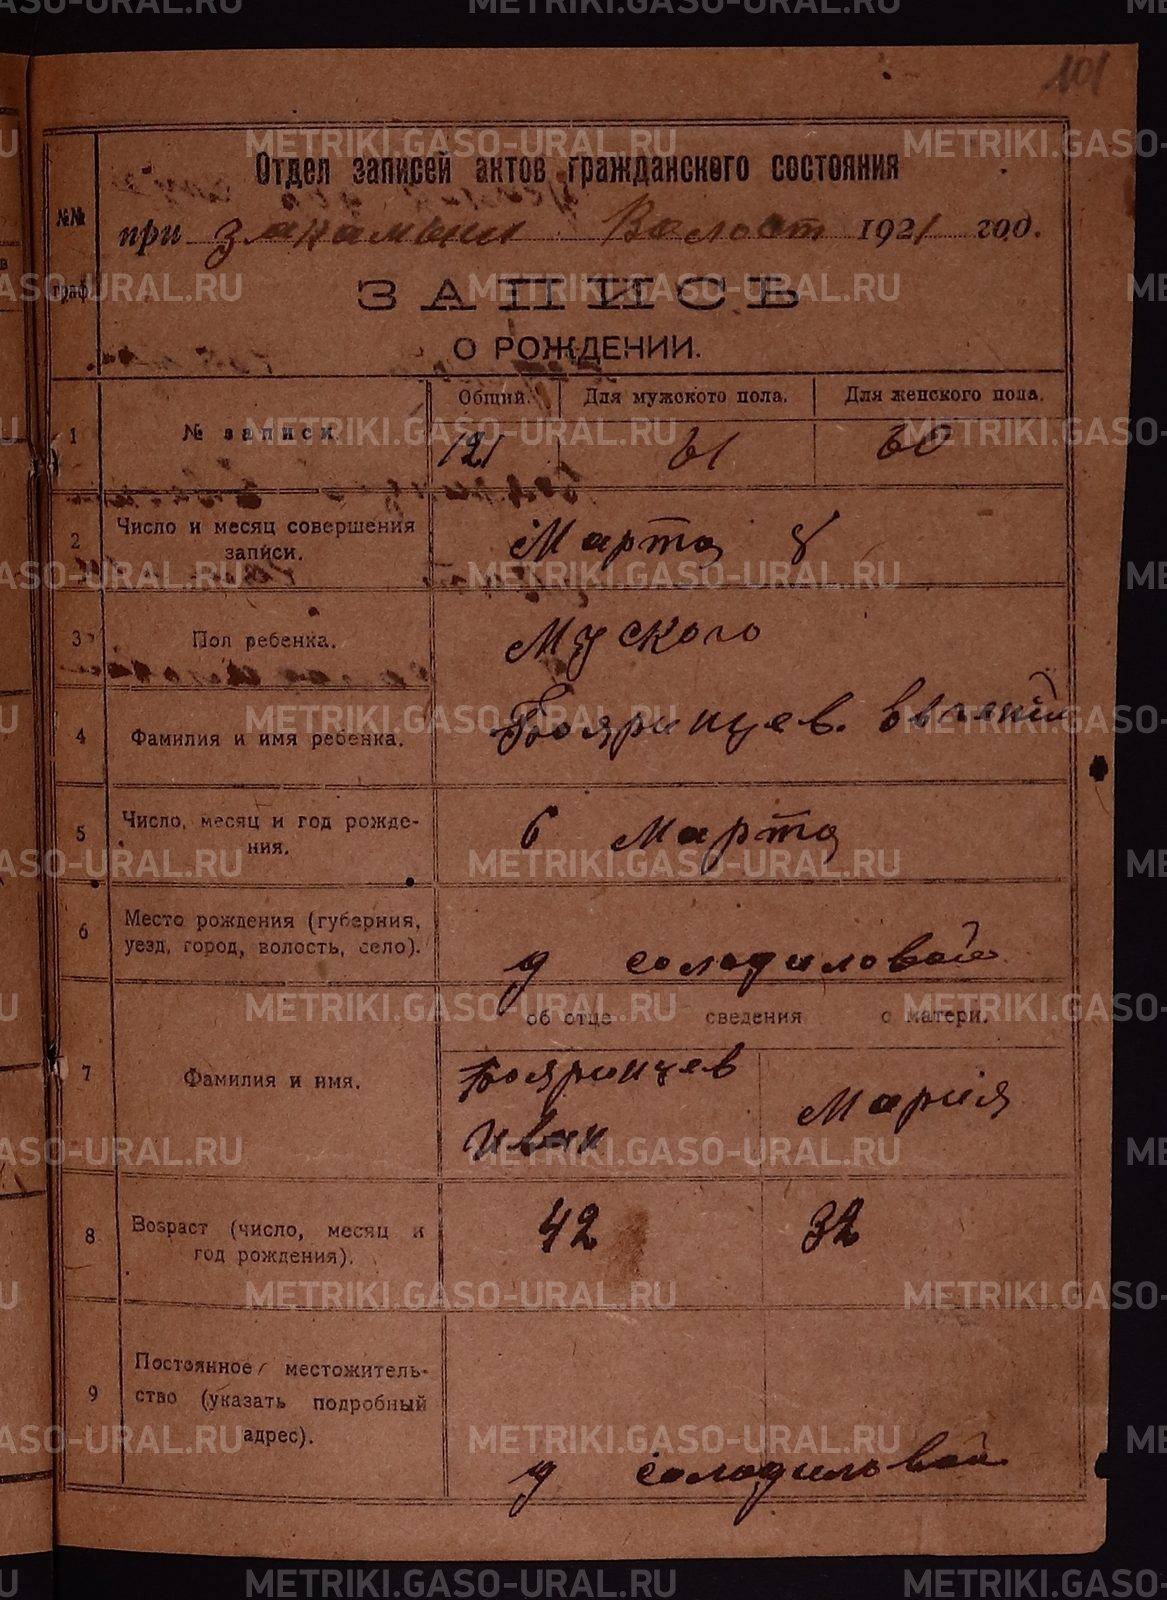 101
Отдел записей актов гражданского состояния
№№ граф.
при Знамамени Волост 1921 год.
ЗАПИСЬ
О РОЖДЕНИИ.
Общий. Для мужского пола. Для женского пола.
1 № записи. 121 61 60
2 Число и месяц совершения
записи. Марта 8
3 Пол ребенка. Муского
4 Фамилия и имя ребенка. Бояринцев.
5 Число, месяц и год рожде-
ния. 6 Марта
6 Место рождения (губерния,
уезд, город, волость, село). д солодиловой
об отце сведения о матери.
7 Фамилия и имя. Бояринцев
Иван Мария
8 Возраст (число, месяц и
год рождения). 42 32
9 Постоянное местожитель-
ство (указать подробный
адрес). д солодиловой
METRIKI.GASO-URAL.RU